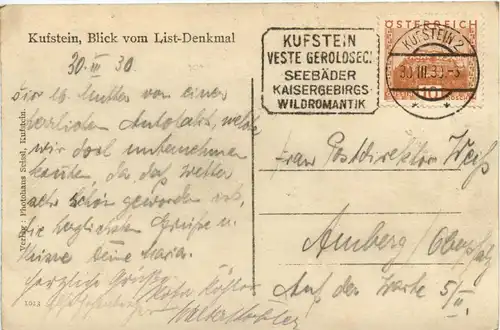 Kufstein, Blick vom List-Denkmal
30. III 30.
Dir lb. Mutter von einer
herrlichen Autofahrt, welche
wir doch unternehmen
konnten, da das Wetter
sehr schön geworden ist,
die herzlichsten Grüße u.
Küsse Deine Maria.
Herzliche Grüße
Verlag: Photohaus Seisl, Kufstein.
1013
KUFSTEIN
VESTE GEROLDSECK
SEEBÄDER
KAISERGEBIRGS-
WILDROMANTIK
ÖSTERREICH
KUFSTEIN 2
30.III.30
10
Frau Postdirektor Weiß
Amberg / Oberpfalz
Auf der Warte 5/II